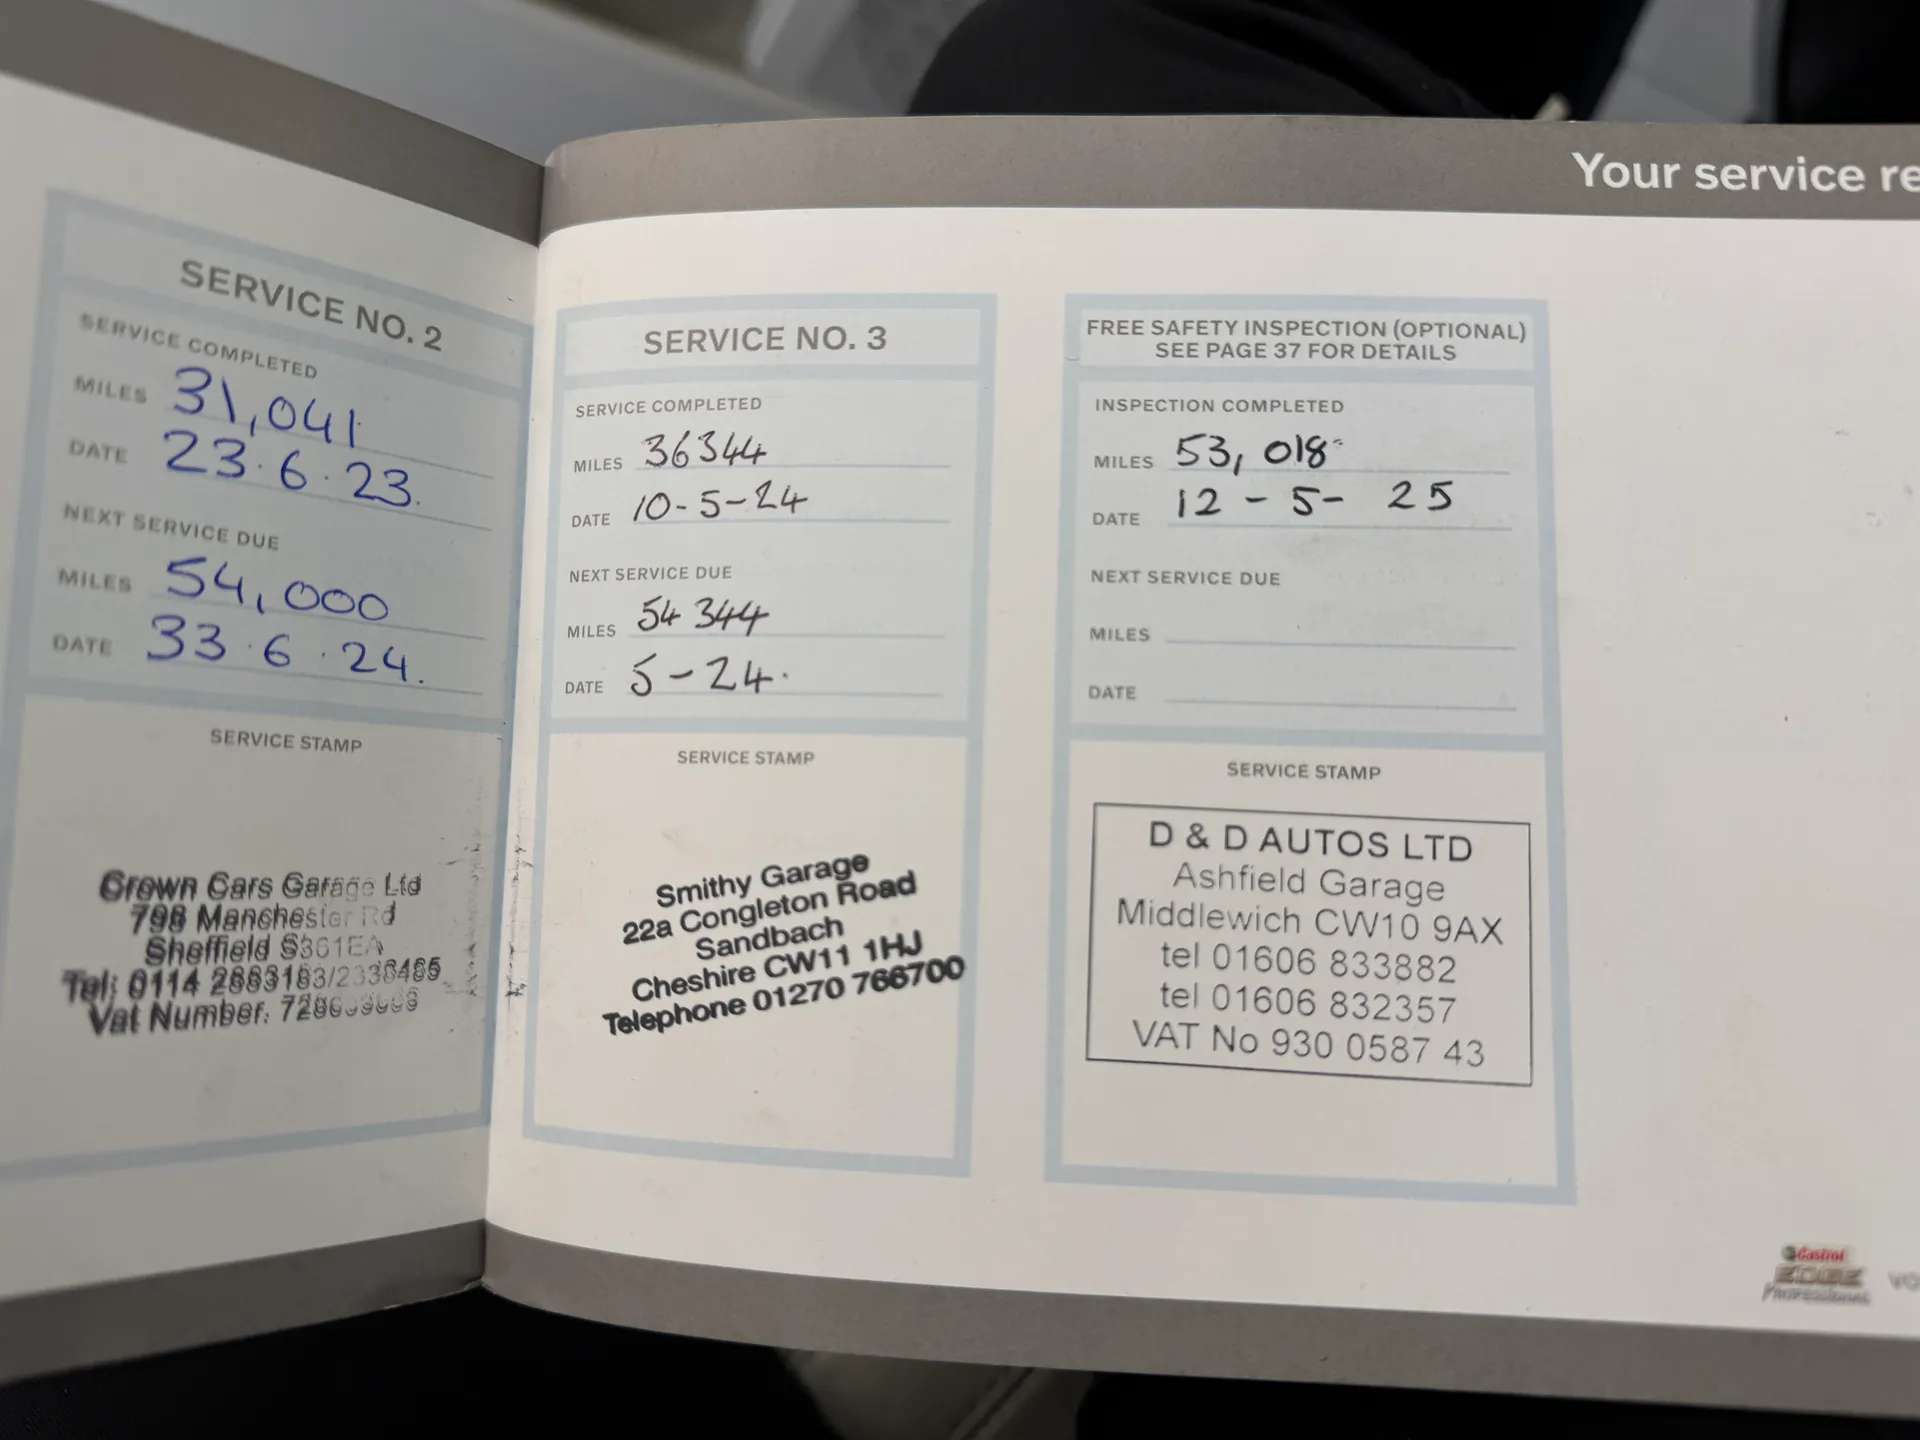 Your service re
SERVICE NO. 2
SERVICE COMPLETED
MILES 31,041
DATE 23.6.23.
NEXT SERVICE DUE
MILES 54,000
DATE 33.6.24.
SERVICE STAMP
Crown Cars Garage Ltd
Manchester Rd
Sheffield S361EA
Tel: 0114
Vat Number.
SERVICE NO. 3
SERVICE COMPLETED
MILES 36344
DATE 10-5-24
NEXT SERVICE DUE
MILES 54 344
DATE 5-24.
SERVICE STAMP
Smithy Garage
22a Congleton Road
Sandbach
Cheshire CW11 1HJ
Telephone 01270 766700
FREE SAFETY INSPECTION (OPTIONAL)
SEE PAGE 37 FOR DETAILS
INSPECTION COMPLETED
MILES 53,018
DATE 12-5-25
NEXT SERVICE DUE
MILES
DATE
SERVICE STAMP
D & D AUTOS LTD
Ashfield Garage
Middlewich CW10 9AX
tel 01606 833882
tel 01606 832357
VAT No 930 0587 43
Castrol
EDGE
Professional
VO